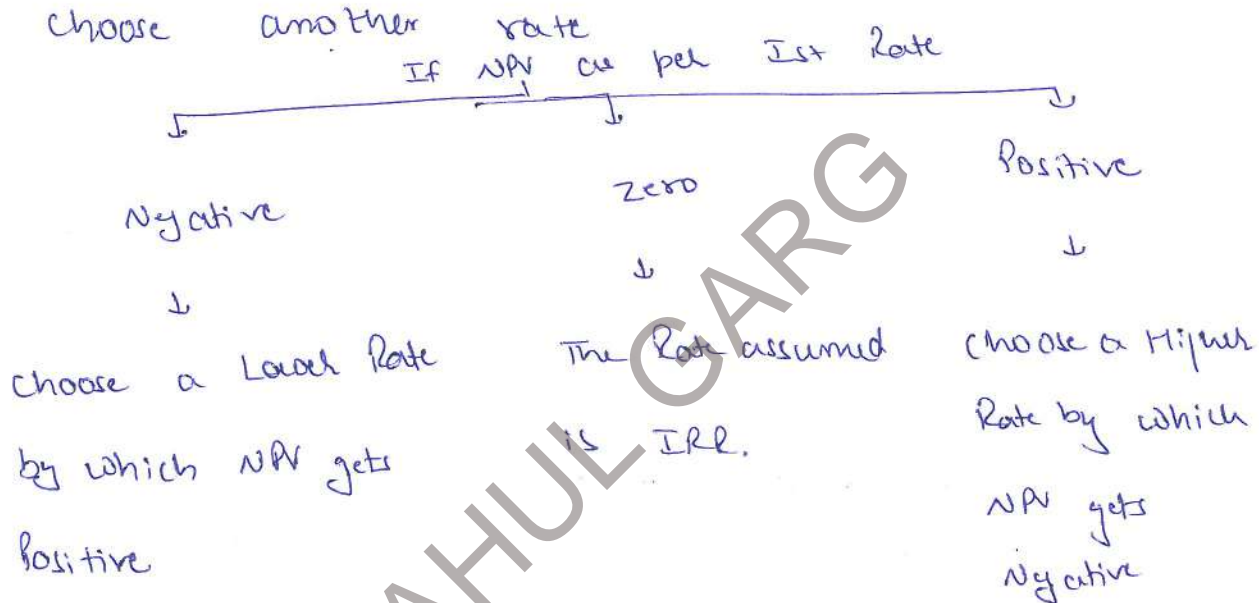 Choose another rate
If NPV as per Ist Rate
Negative
Zero
Positive
Choose a Lower Rate
by which NPV gets
Positive
The Rate assumed
is IRR.
Choose a Higher
Rate by which
NPV gets
Negative
AHUL GARG